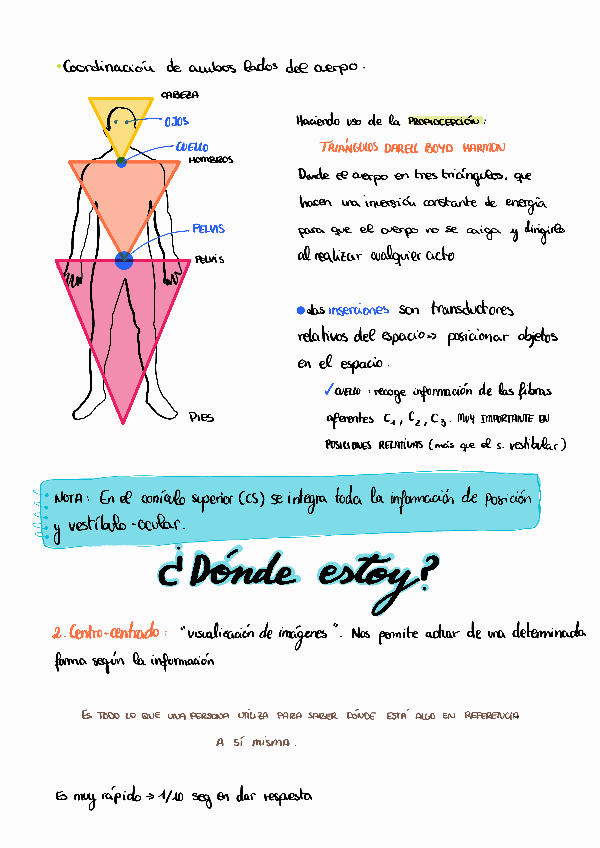 · Coordinación de ambos lados del cuerpo.
CABEZA
OJOS
CUELLO
HOMBROS
PELVIS
PELVIS
PIES
Haciendo uso de la PROPIOCEPCIÓN:
TRIÁNGULOS DARELL BOYD HARMON
Divide el cuerpo en tres triángulos, que
hacen una inversión constante de energía
para que el cuerpo no se caiga y dirigirlo
al realizar cualquier acto
• Las inserciones son transductores
relativos del espacio => posicionar objetos
en el espacio.
✓ CUELLO: recoge información de las fibras
aferentes C1, C2, C3. MUY IMPORTANTE EN
POSICIONES RELATIVAS (más que el s. vestibular)
NOTA: En el conículo superior (CS) se integra toda la información de posición
y vestíbulo-ocular.
¿Dónde estoy?
2. Centro-centrado: "visualización de imágenes". Nos permite actuar de una determinada
forma según la información
ES TODO LO QUE UNA PERSONA UTILIZA PARA SABER DÓNDE ESTÁ ALGO EN REFERENCIA
A SÍ MISMA.
Es muy rápido → 1/10 seg en dar respuesta